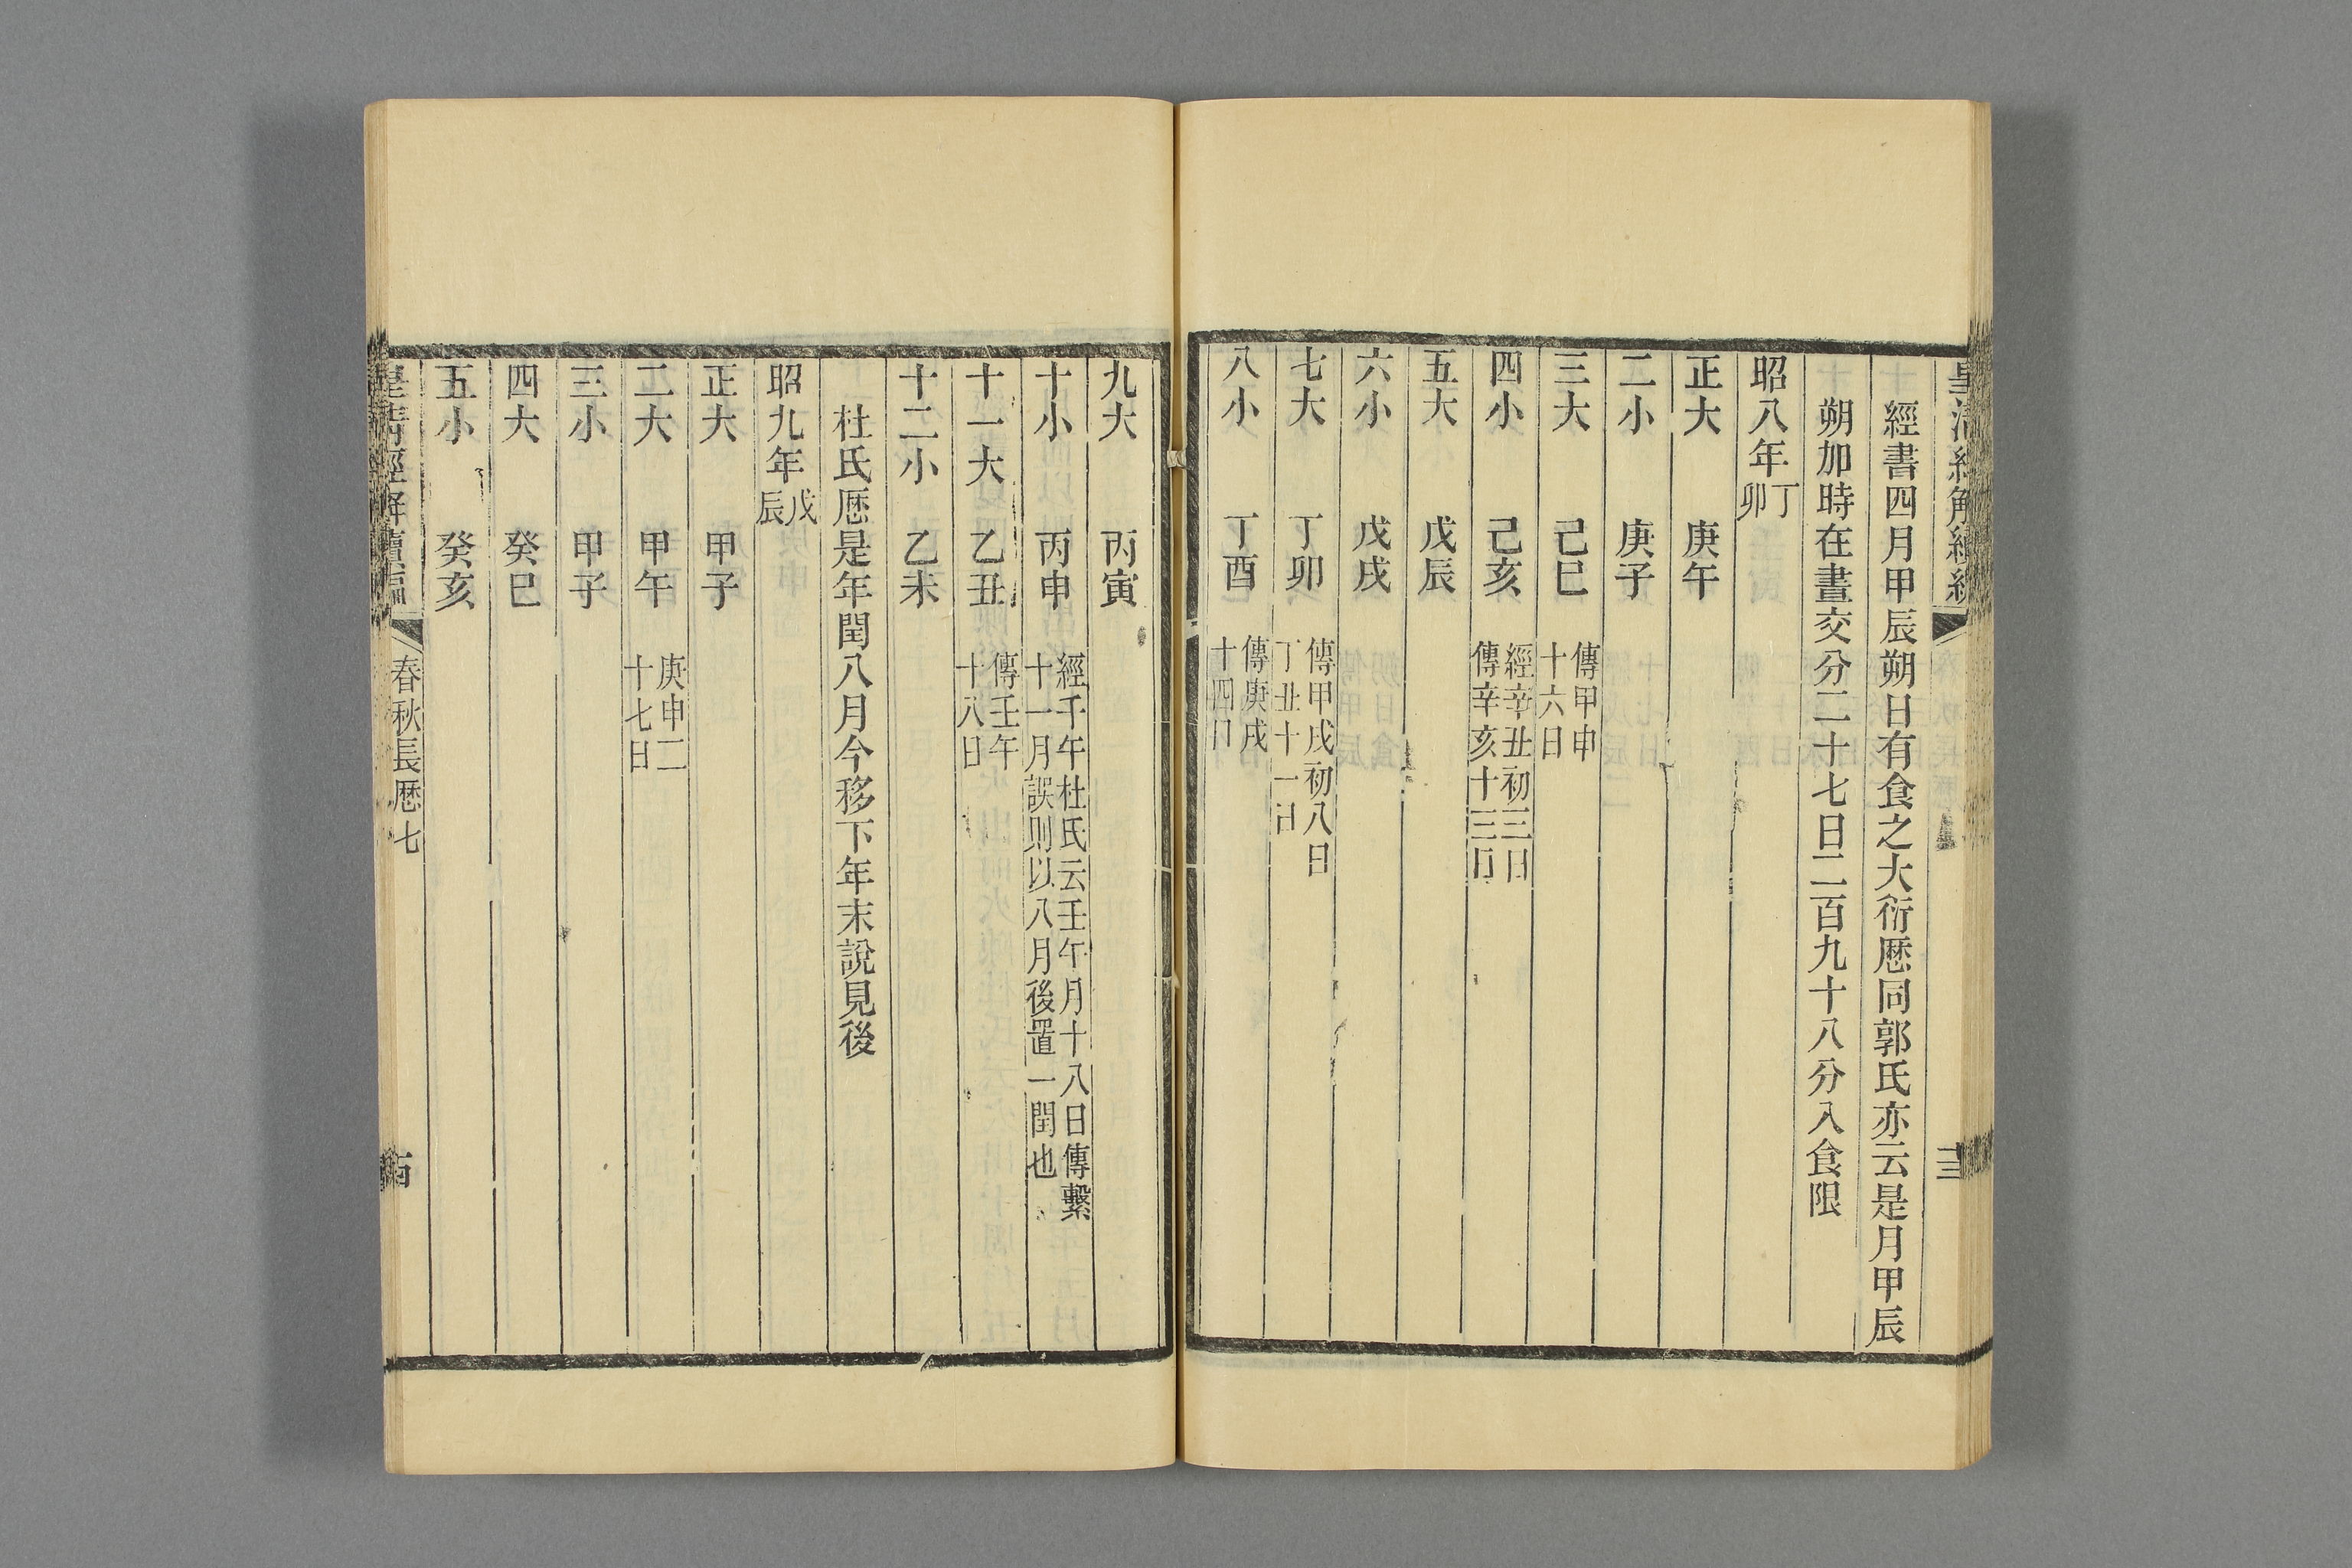 經書四月甲辰朔日有食之大衍厯同郭氏亦云是月甲辰
朔加時在晝交分二十七日二百九十八分入食限
昭八年丁卯
正大 庚午
二小 庚子
三大 己巳 傳甲申十六日
四小 己亥 經辛丑初三日傳辛亥十三日
五大 戊辰
六小 戊戌
七大 丁卯 傳甲戌初八日丁丑十一日
八小 丁酉 傳庚戌十四日
九大 丙寅
十小 丙申 經千午杜氏云壬午月十八日傳繫十一月誤則以八月後置一閏也
十一大 乙丑 傳壬午十八日
十二小 乙未
杜氏厯是年閏八月今移下年末說見後
昭九年戊辰
正大 甲子
二大 甲午 庚申二十七日
三小 甲子
四大 癸巳
五小 癸亥
皇清經解續編 春秋長厯七